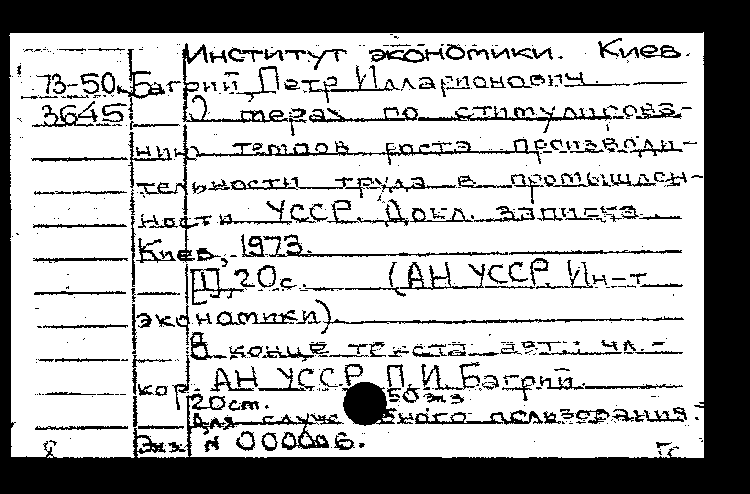 Институт экономики. Киев.
73-50. Багрий, Петр Илларионович.
3645 О мерах по стимулирова-
нию темпов роста производи-
тельности труда в промышлен-
ности УССР. Докл. записка.
Киев, 1973.
[1], 20 с. (АН УССР. Ин-т
экономики).
В конце текста авт.: чл.-
кор. АН УССР П.И. Багрий.
20 см. 50 экз
Для служебного пользования.
Экз. № 000006.